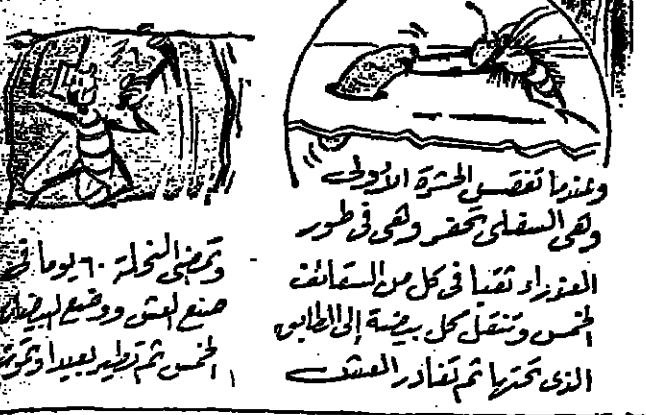 وعندما تفقس الحشرة الأولى
وهى السفلى تحفر وهى فى طور
العذراء ثقبا فى كل من السقائف
الخمس وتنقل كل بيضة إلى الطابق
الذى تحتها ثم تغادر العش
وتمضى النحلة ٦٠ يوما فى
صنع العش ووضع البيضات
الخمس ثم تطير بعيدا وتموت